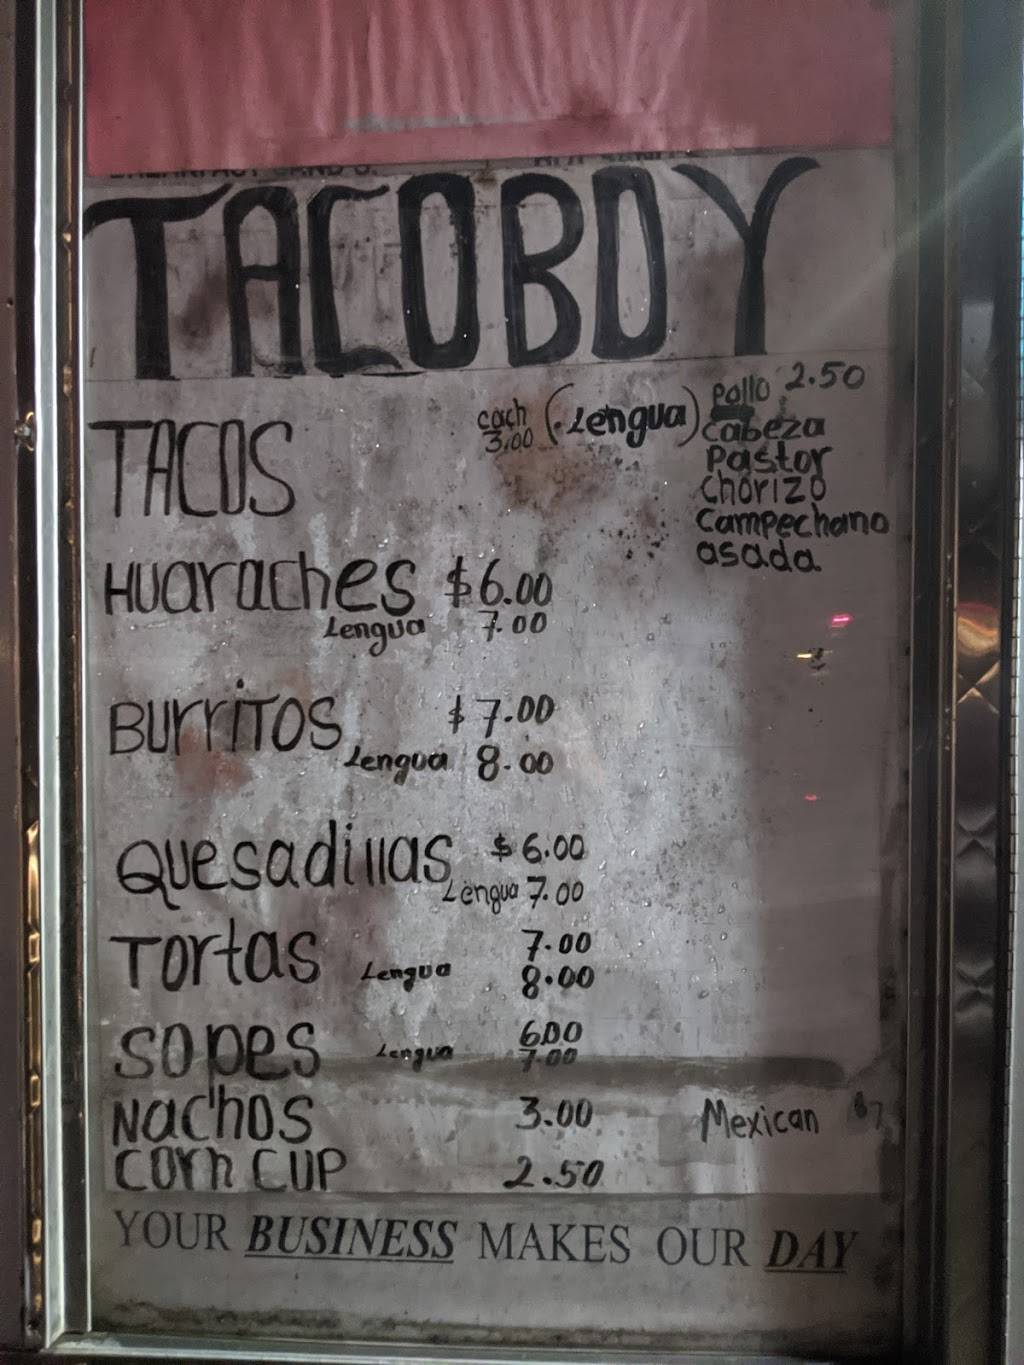 TACOBOY
TACOS cach 3.00 (Lengua) pollo 2.50
Cabeza
Pastor
Chorizo
Campechano
asada
Huaraches $6.00
Lengua 7.00
Burritos $7.00
Lengua 8.00
Quesadillas $6.00
Lengua 7.00
Tortas 7.00
Lengua 8.00
Sopes 6.00
Lengua 7.00
Nachos 3.00 Mexican $7
Corn CUP 2.50
YOUR BUSINESS MAKES OUR DAY